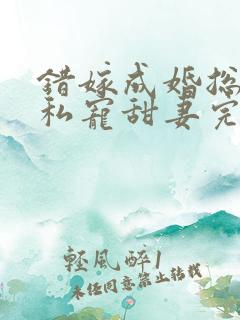 错嫁成婚总
私宠甜妻完
轻風醉1
未经同意禁止转载